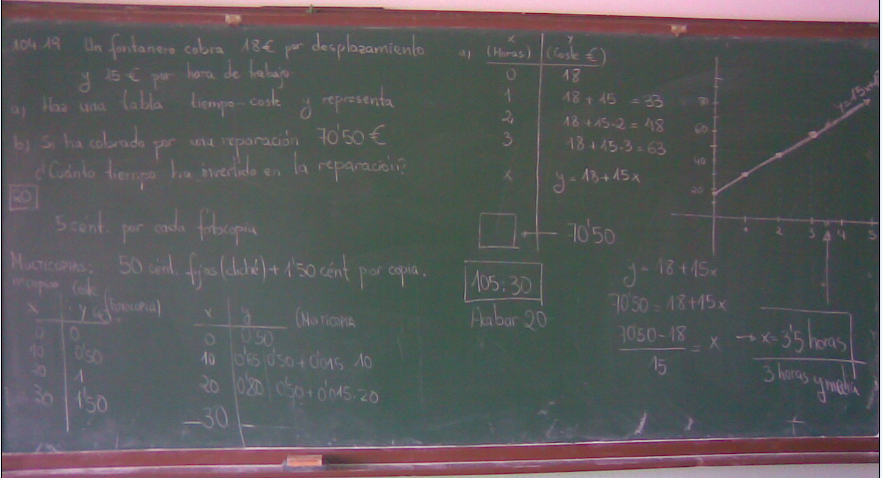 104.19 Un fontanero cobra 18€ por desplazamiento
y 15 € por hora de trabajo
a) Haz una tabla tiempo-coste y representa
b) Si ha cobrado por una reparación 70'50 €
¿Cuánto tiempo ha invertido en la reparación?
20
5 cént. por cada fotocopia
MULTICOPIAS: 50 cént. fijos (cliché) + 1'50 cént por copia.
x y (fotocopia)
0 0
10 0'50
20 1
30 1'50
x y (Multicopia
0 0'50
10 0'65 0'50+0'015·10
20 0'80 0'50+0'015·20
30
a) x y
(Horas) (Coste €)
0 18
1 18+15 = 33
2 18+15·2 = 48
3 18+15·3 = 63
x y = 18+15x
70'50
105:30
Acabar 20
80
60
40
20
1 2 3 4 5
y = 18+15x
70'50 = 18+15x
70'50-18
15
= x → x = 3'5 horas
3 horas y media